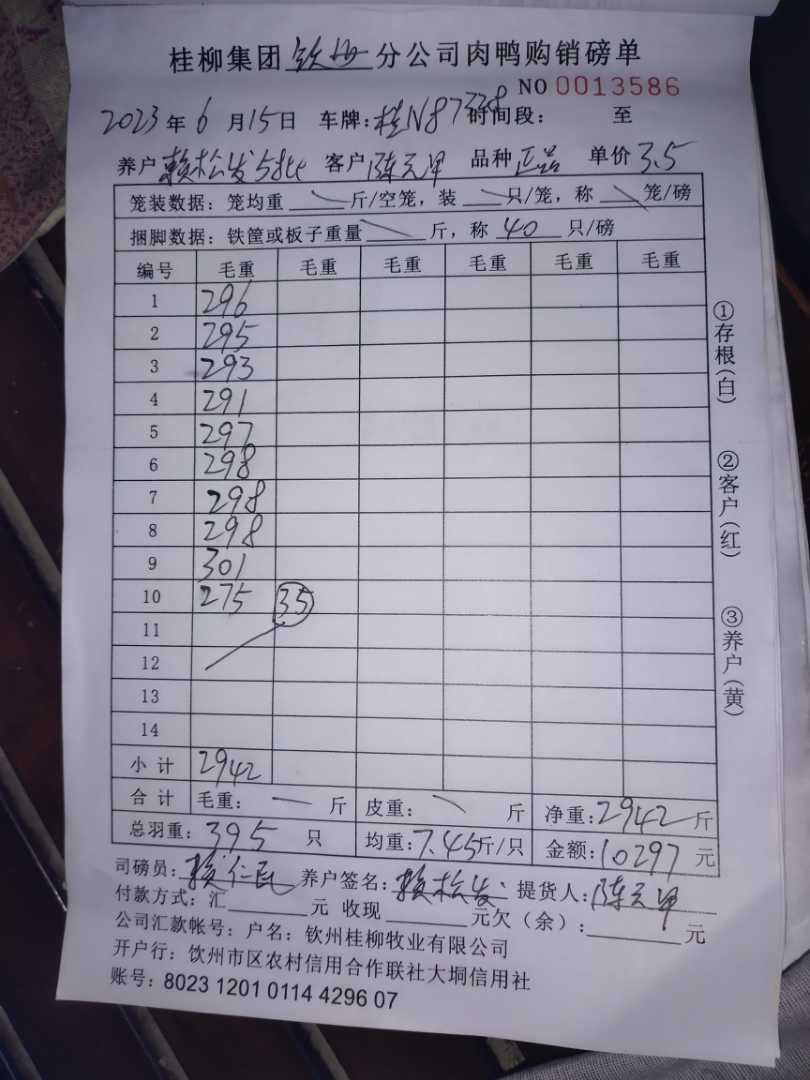 桂柳集团 钦州 分公司肉鸭购销磅单
NO 0013586
2023 年 6 月 15 日 车牌: 桂N87338 时间段: 至
养户 赖松发 客户 陈 品种 正品 单价 3.5
笼装数据: 笼均重 斤/空笼, 装 只/笼, 称 笼/磅
捆脚数据: 铁筐或板子重量 斤, 称 40 只/磅
编号 毛重 毛重 毛重 毛重 毛重 毛重
1 296
2 295
3 293
4 291
5 297
6 298
7 298
8 298
9 301
10 275 35
11
12
13
14
小计 2942
合计 毛重: 斤 皮重: 斤 净重: 2942 斤
总羽重: 395 只 均重: 7.45 斤/只 金额: 10297 元
司磅员: 赖仁民 养户签名: 赖松发 提货人: 陈
付款方式: 汇 元 收现 元 欠(余): 元
公司汇款帐号: 户名: 钦州桂柳牧业有限公司
开户行: 饮州市区农村信用合作联社大垌信用社
账号: 8023 1201 0114 4296 07
①存根(白)
②客户(红)
③养户(黄)